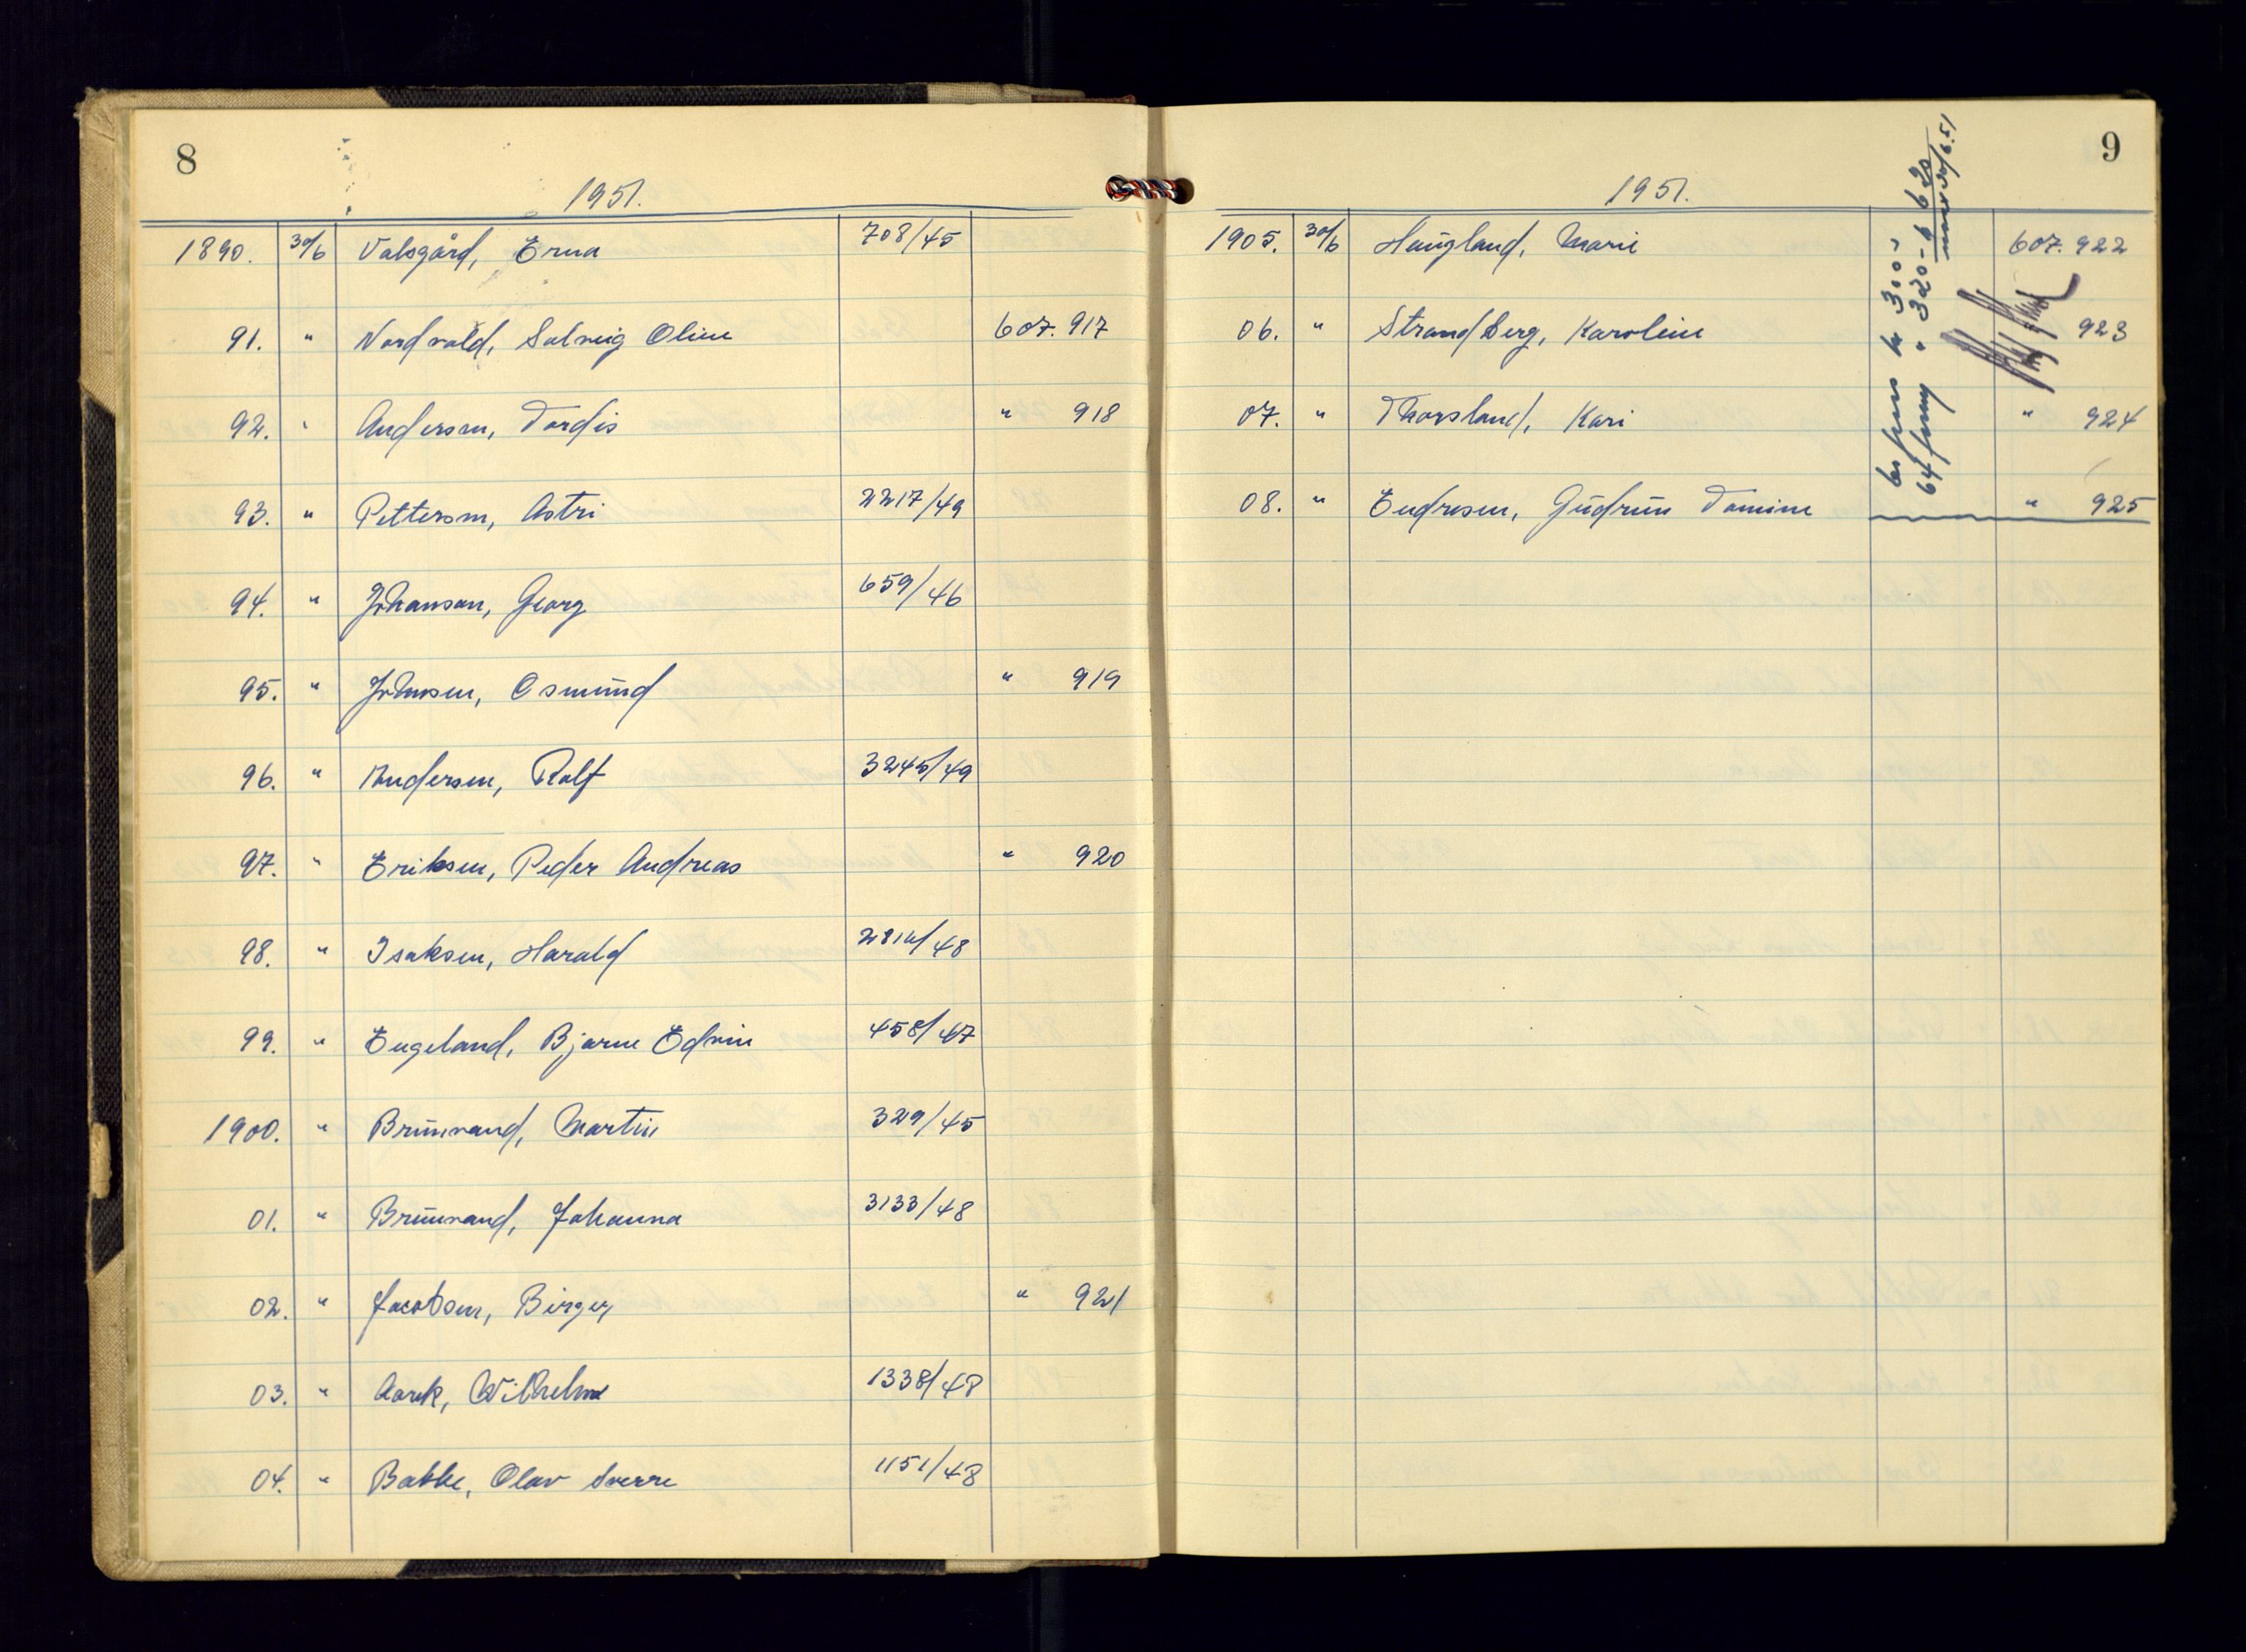 8
1951.
1890. 30/6 Valsgård, Erna 708/45
91. " Nordvold, Solveig Oline 607.917
92. " Andersen, Tordis " 918
93. " Pettersen, Astri 2217/49
94. " Johansen, Georg 659/46
95. " Johnsen, Osmund " 919
96. " Andersen, Rolf 3245/49
97. " Eriksen, Peder Andreas " 920
98. " Isaksen, Harald 48
99. " Engeland, Bjarne Edvin 458/47
1900. " Brunvand, Martin 329/45
01. " Brunvand, Johanna 3133/48
02. " Jacobsen, Birger " 921
03. " Aarek, Wilhelm 1338/48
04. " Bakke, Olav Sverre 1151/48
9
1951.
1905. 30/6 Haugland, Marie 607.922
06. " Strandberg, Karoline 923
07. " Thorsland, Kari " 924
08. " Endresen, Gudrun Tomine " 925
kr 300.-
64 " 320.- 620
30/6.51